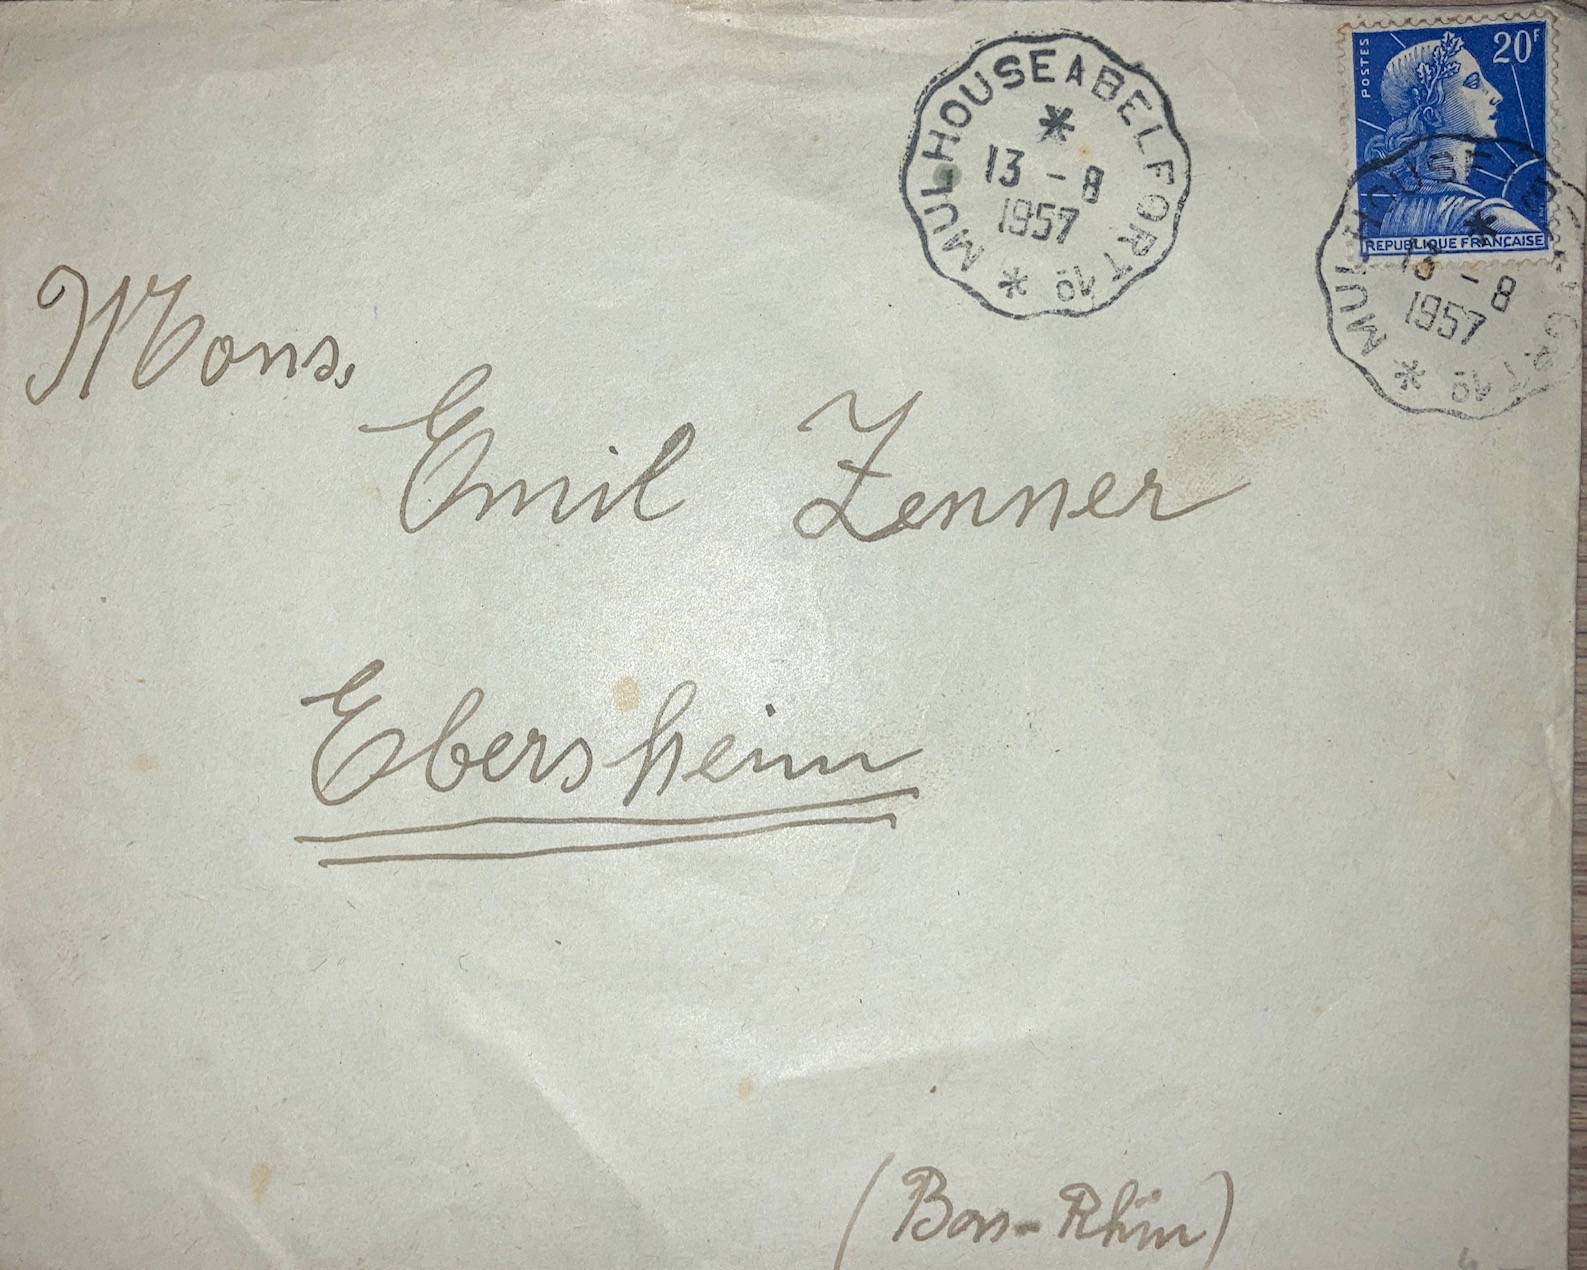 MULHOUSE A BELFORT 1º
13 - 8
1957
POSTES
20F
REPUBLIQUE FRANÇAISE
MULHOUSE A BELFORT 1º
13 - 8
1957
Mons.
Emil Zenner
Ebersheim
(Bas-Rhin)